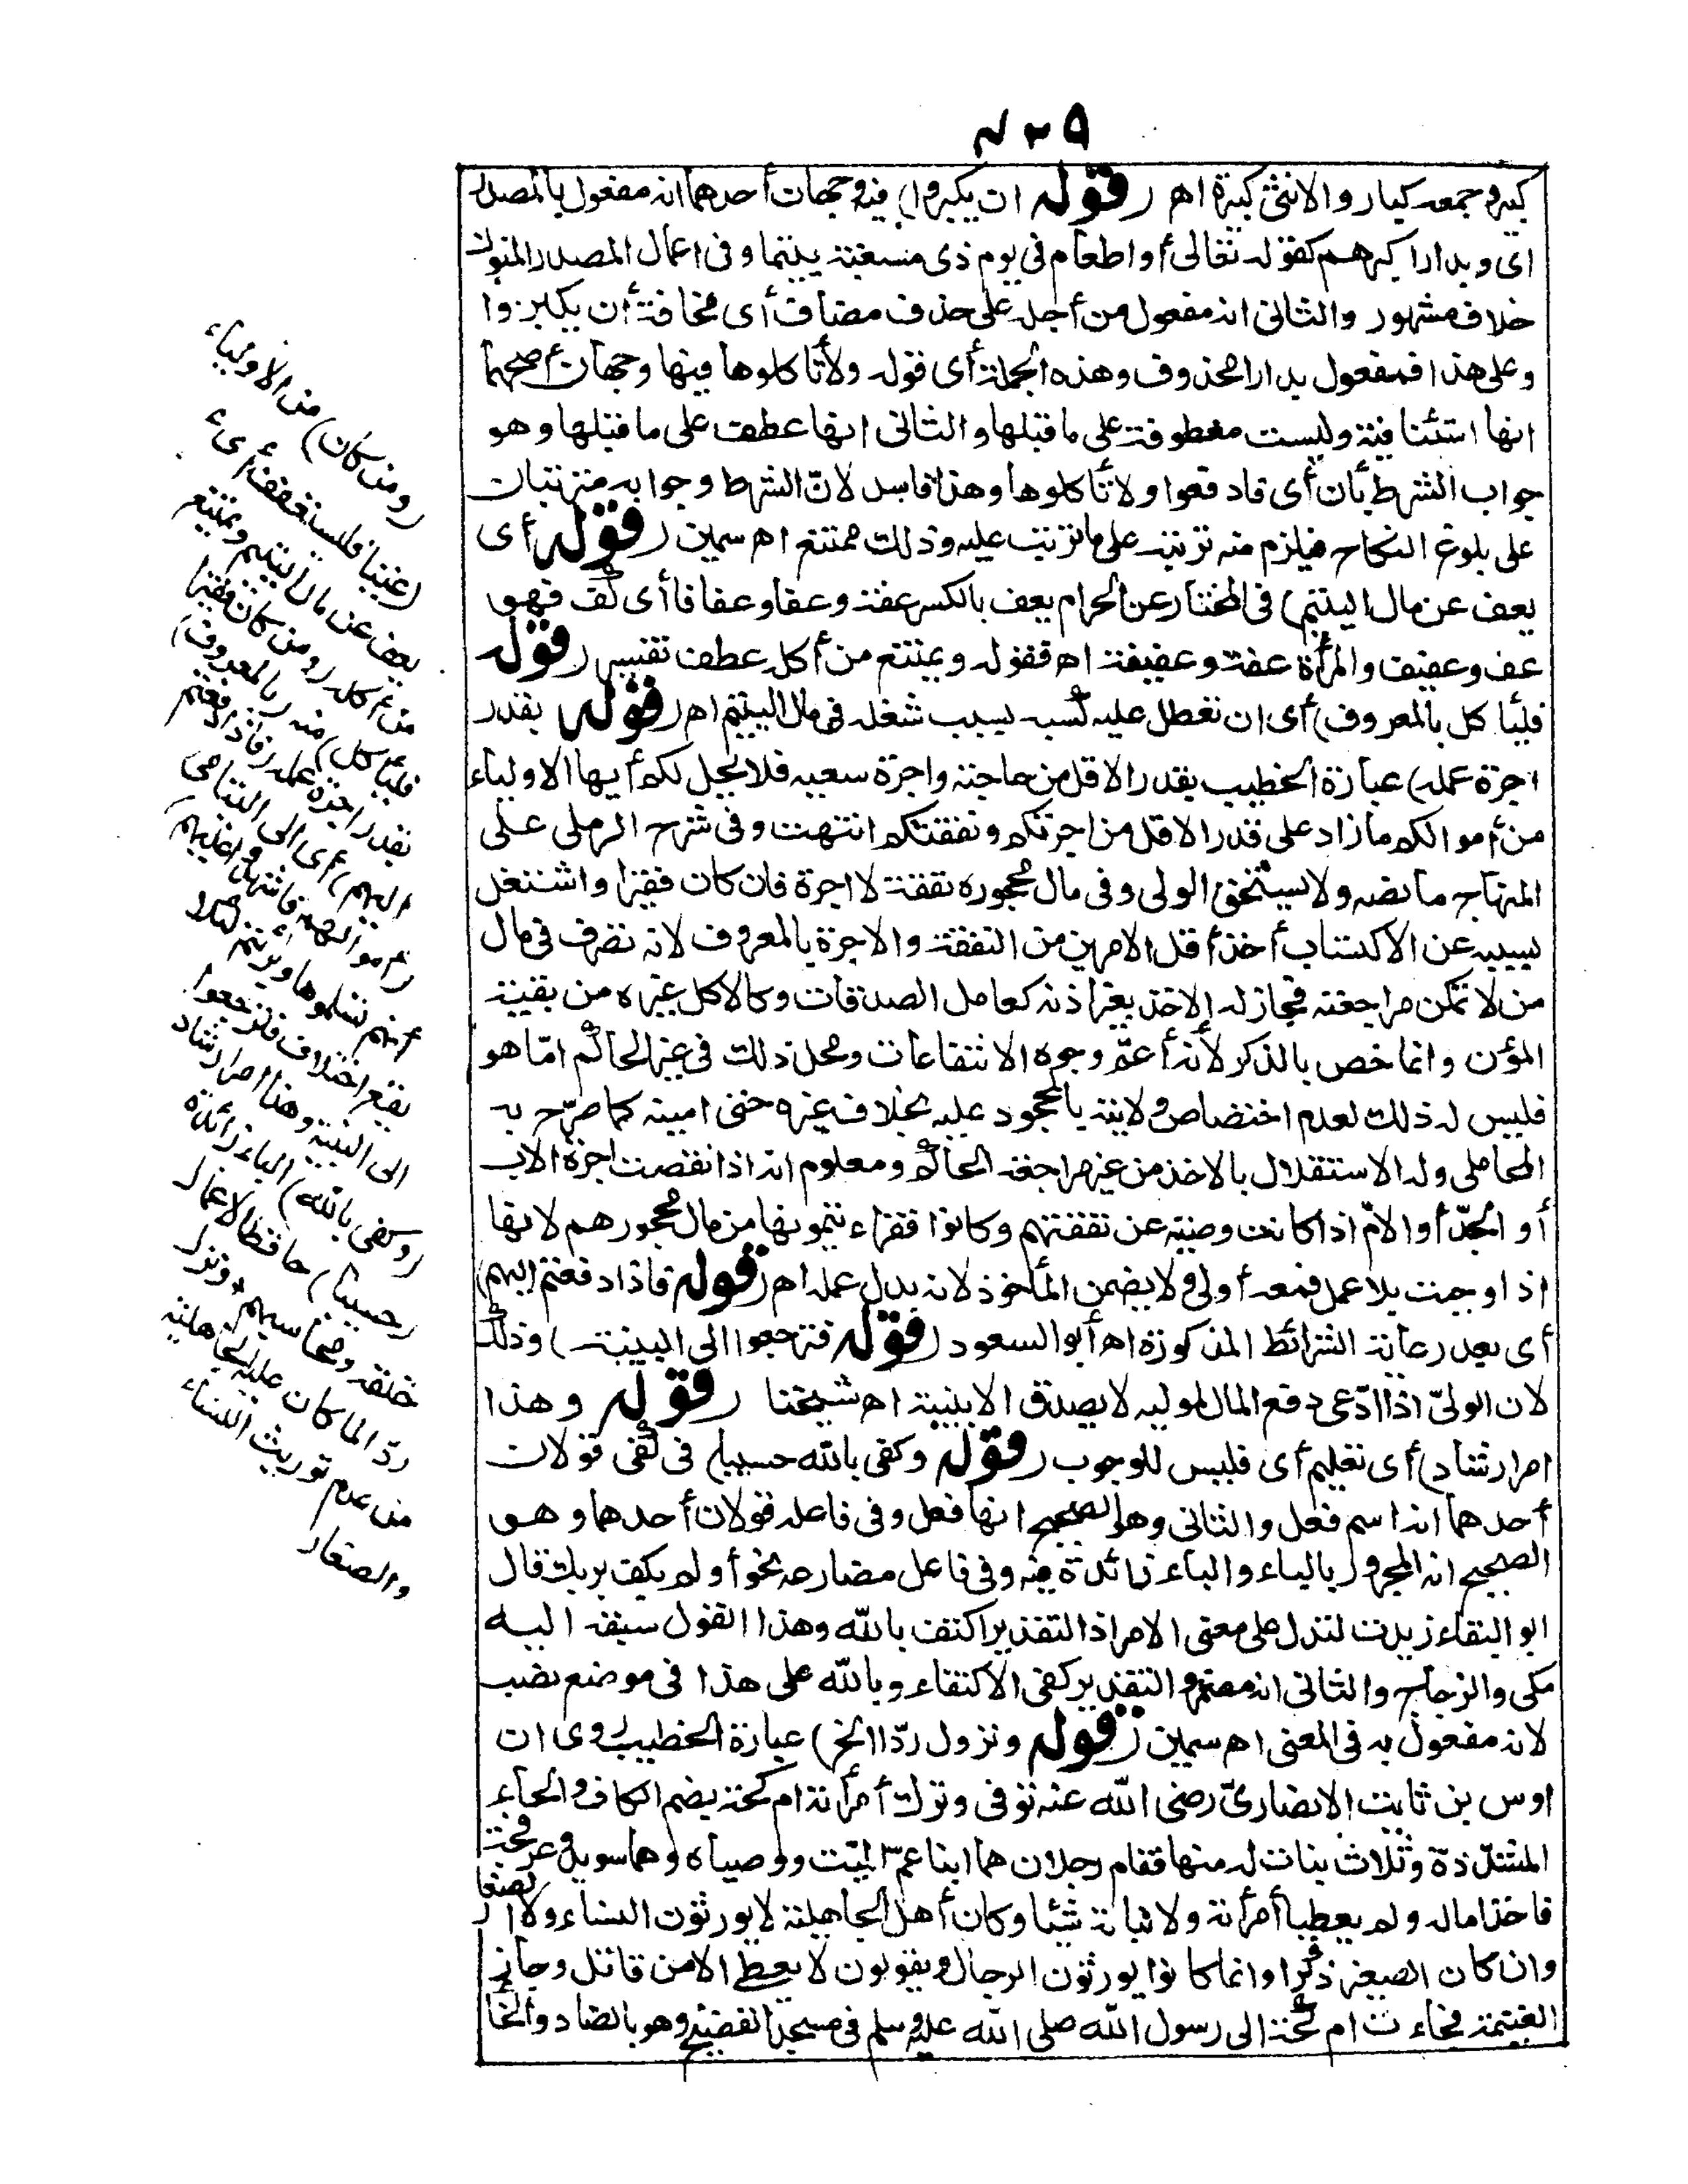 كبير وجمعه كبار والانثى كبيرة اهـ (قوله ان يكبروا) فيه وجهان أحدهما انه مفعول بالمصدر
اى وبدارا كبرهم كقوله تعالى أو اطعام فى يوم ذى مسغبة يتيما وفى اعمال المصدر المنون
خلاف مشهور والثانى انه مفعول من أجله على حذف مضاف أى مخافة أن يكبروا
وعلى هذا فمفعول بدارا محذوف وهذه الجملة أى قوله ولا تأكلوها فيها وجهان أصحهما
انها استئنافية وليست معطوفة على ما قبلها والثانى انها عطف على ما قبلها وهو
جواب الشرط بأن أى فادفعوا ولا تأكلوها وهذا فاسد لانّ الشرط وجوابه مترتبان
على بلوغ النكاح فيلزم منه ترتبه على ما ترتب عليه وذلك ممتنع اهـ سمين (قوله أى
يعف عن مال اليتيم) فى المختار عن الحرام يعف بالكسر عفة وعفا وعفافا أى كف فهو
عف وعفيف والمرأة عفة وعفيفة اهـ فقوله ويمتنع من أكله عطف تفسير (قوله
فليأكل بالمعروف) أى ان تعطل عليه كسبه بسبب شغله فى مال اليتيم اهـ (قوله بقدر
اجرة عمله) عبارة الخطيب بقدر الاقل من حاجته واجرة سعيه فلا يحل لكم أيها الاولياء
من أموالكم ما زاد على قدر الاقل من اجرتكم ونفقتكم انتهت وفى شرح الرملى على
المنهاج ما نصه ولا يستحق الولى وفى مال محجوره نفقة لا اجرة فان كان فقيرا واشتغل
بسببه عن الاكتساب أخذ أقل الامرين من النفقة والاجرة بالمعروف لانه تصرف فى مال
من لا تمكن مراجعته فجاز له الاخذ بغير اذنه كعامل الصدقات وكالاكل غيره من بقية
المؤن وانما خص بالذكر لأنه أعمّ وجوه الانتفاعات ومحل ذلك فى غير الحاكم امّا هو
فليس له ذلك لعدم اختصاص ولايته بالمحجور عليه بخلاف غيره حتى امينه كما صرّح به
المحاملى وله الاستقلال بالاخذ من غير مراجعة الحاكم ومعلوم انه اذا نقصت اجرة الاب
أو الجدّ أو الامّ اذا كانت وصية عن نفقتهم وكانوا فقراء يتمونها من مال محجورهم لانها
اذا وجبت بلا عمل فمعه أولى ولا يضمن المأخوذ لانه بدل عمله اهـ (قوله فاذا دفعتم اليهم)
أى بعد رعاية الشرائط المذكورة اهـ أبو السعود (قوله فترجعوا الى البينة) وذلك
لان الولىّ اذا ادّعى دفع المال لموليه لا يصدق الا ببينة اهـ شيخنا (قوله وهذا
امر ارشاد) أى تعليم أى فليس للوجوب (قوله وكفى بالله حسيبا) فى كفى قولان
أحدهما انه اسم فعل والثانى وهو الصحيح انها فعل وفى فاعله قولان أحدهما وهو
الصحيح انه المجرور بالباء والباء زائدة فيه وفى فاعل مضارعه نحو أو لم يكف بربك قال
ابو البقاء زيدت لتدل على معنى الامر اذ التقدير اكتف بالله وهذا القول سبقه اليه
مكى والزجاج والثانى انه مضمر والتقدير كفى الاكتفاء وبالله على هذا فى موضع نصب
لانه مفعول به فى المعنى اهـ سمين (قوله ونزول ردّا الخ) عبارة الخطيب روى ان
اوس بن ثابت الانصارىّ رضى الله عنه توفى وترك أمرأته ام كحة بضم الكاف والحاء
المشدّدة وثلاث بنات له منها فقام رجلان هما ابنا عمّ الميّت ووصياه وهما سويد وعرفجة
فاخذا ماله ولم يعطيا أمرأته ولا بناته شيئا وكان أهل الجاهلية لا يورثون النساء ولا الصغار
وان كان الصغير ذكرا وانما كانوا يورثون الرجال ويقولون لا يعطى الا من قاتل وحاز
الغنيمة فجاءت ام كحة الى رسول الله صلى الله عليه وسلم فى مسجد الفضيح وهو بالضاد والخا
من الاولياء
(ومن كان)
(غنيا فليستعفف) أى
يعف عن مال اليتيم ويمتنع
من أكله (ومن كان فقيرا
فليأكل) منه (بالمعروف)
بقدر اجرة عمله (فاذا دفعتم
اليهم) أى الى اليتامى
(أموالهم فاشهدوا عليهم)
أنهم تسلموها وبرئتم لئلا
يقع اختلاف فترجعوا
الى البينة وهذا امر ارشاد
(وكفى بالله) الباء زائدة
(حسيبا) حافظا لاعمال
خلقه ومحاسبهم * ونزل
ردّا لما كان عليه الجاهلية
من عدم توريث النساء
والصغار